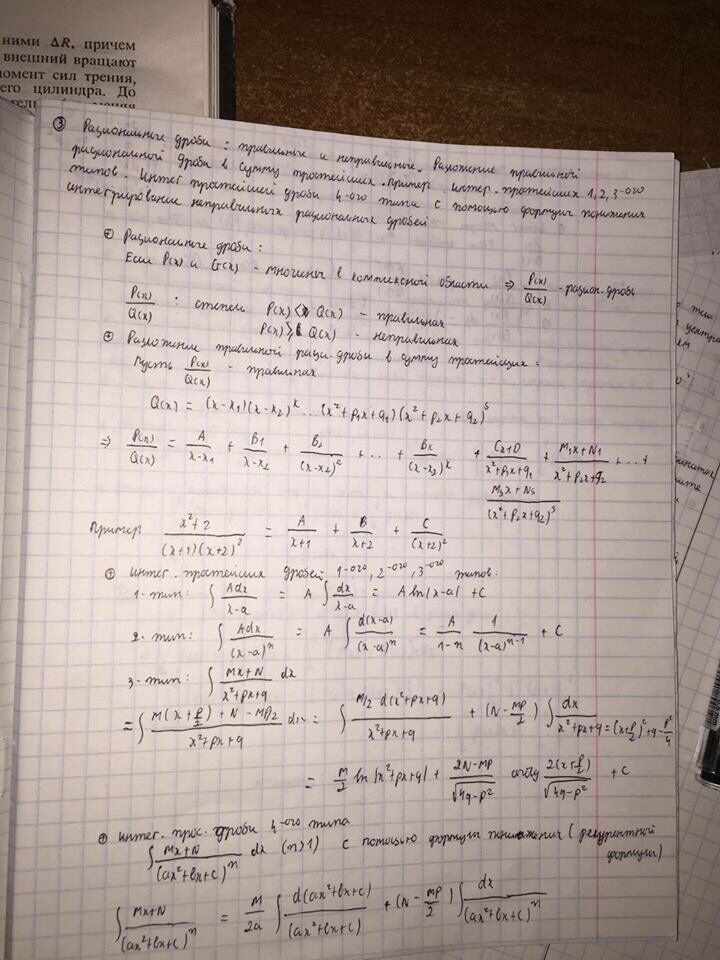 ними ΔR, причем
внешний вращают
момент сил трения,
его цилиндра. До
③ Рациональные дроби: правильные и неправильные. Разложение правильной
рациональной дроби в сумму простейших. Пример. интегр. простейших 1,2,3-ого
типов. Интег простейшей дроби 4-ого типа с помощью формулы понижения
интегрирование неправильных рациональных дробей
Рациональные дроби:
Если P(x) и Q(x) - многочлены в комплексной области ⇒ P(x)/Q(x) - рацион. дробь
P(x)/Q(x) : степень P(x) < Q(x) - правильная
P(x) ≥ Q(x) - неправильная
Разложение правильной рац. дроби в сумму простейших:
Пусть P(x)/Q(x) - правильная
Q(x) = (x-x₁)(x-x₂)^k ... (x²+p₁x+q₁)(x²+p₂x+q₂)^s
⇒ P(x)/Q(x) = A/(x-x₁) + B₁/(x-x₂) + B₂/(x-x₂)² + ... + Bk/(x-x₃)^k + (Cx+D)/(x²+p₁x+q₁) + (M₁x+N₁)/(x²+p₂x+q₂) + ... +
(Msx+Ns)/(x²+p₂x+q₂)^s
Пример (x²+2)/((x+1)(x+2)²) = A/(x+1) + B/(x+2) + C/(x+2)²
интег. простейших дробей 1-ого, 2-ого, 3-ого типов:
1-тип: ∫ Adx/(x-a) = A ∫ dx/(x-a) = A ln|x-a| + C
2-тип: ∫ Adx/(x-a)^n = A ∫ d(x-a)/(x-a)^n = A/(1-n) 1/(x-a)^(n-1) + C
3-тип: ∫ (Mx+N)/(x²+px+q) dx
= ∫ (M(x+p/2) + N - Mp/2)/(x²+px+q) dx = ∫ (M/2 d(x²+px+q))/(x²+px+q) + (N - Mp/2) ∫ dx/(x²+px+q = (x+p/2)² + q - p²/4)
= M/2 ln|x²+px+q| + (2N-Mp)/√(4q-p²) arctg 2(x+p/2)/√(4q-p²) + C
интег. прос. дроби 4-ого типа
∫ (Mx+N)/(ax²+bx+c)^n dx (n>1) с помощью формулы понижения (рекурентной
формулы)
∫ (Mx+N)/(ax²+bx+c)^n = M/2a ∫ d(ax²+bx+c)/(ax²+bx+c) + (N - Mp/2) ∫ dx/(ax²+bx+c)^n